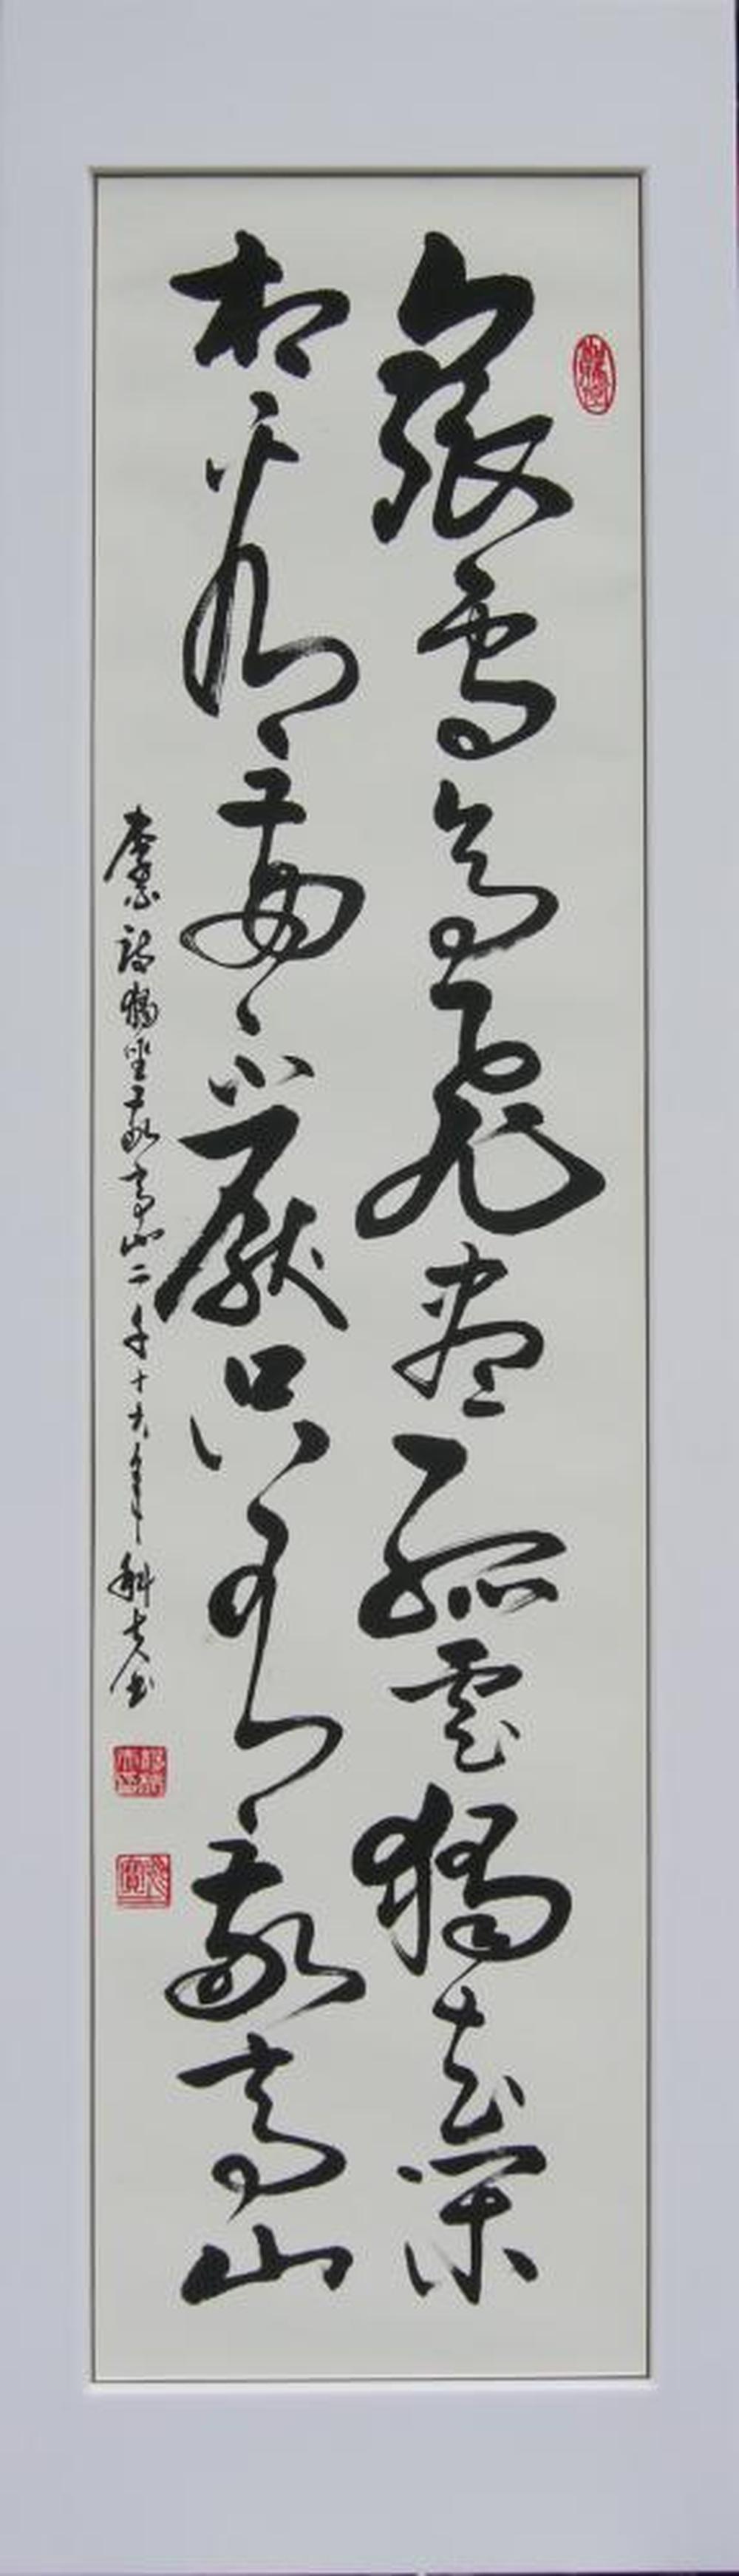 眾鳥高飛盡孤雲獨去閑
相看兩不厭只有敬亭山
李白詩獨坐敬亭山二千十六年 書